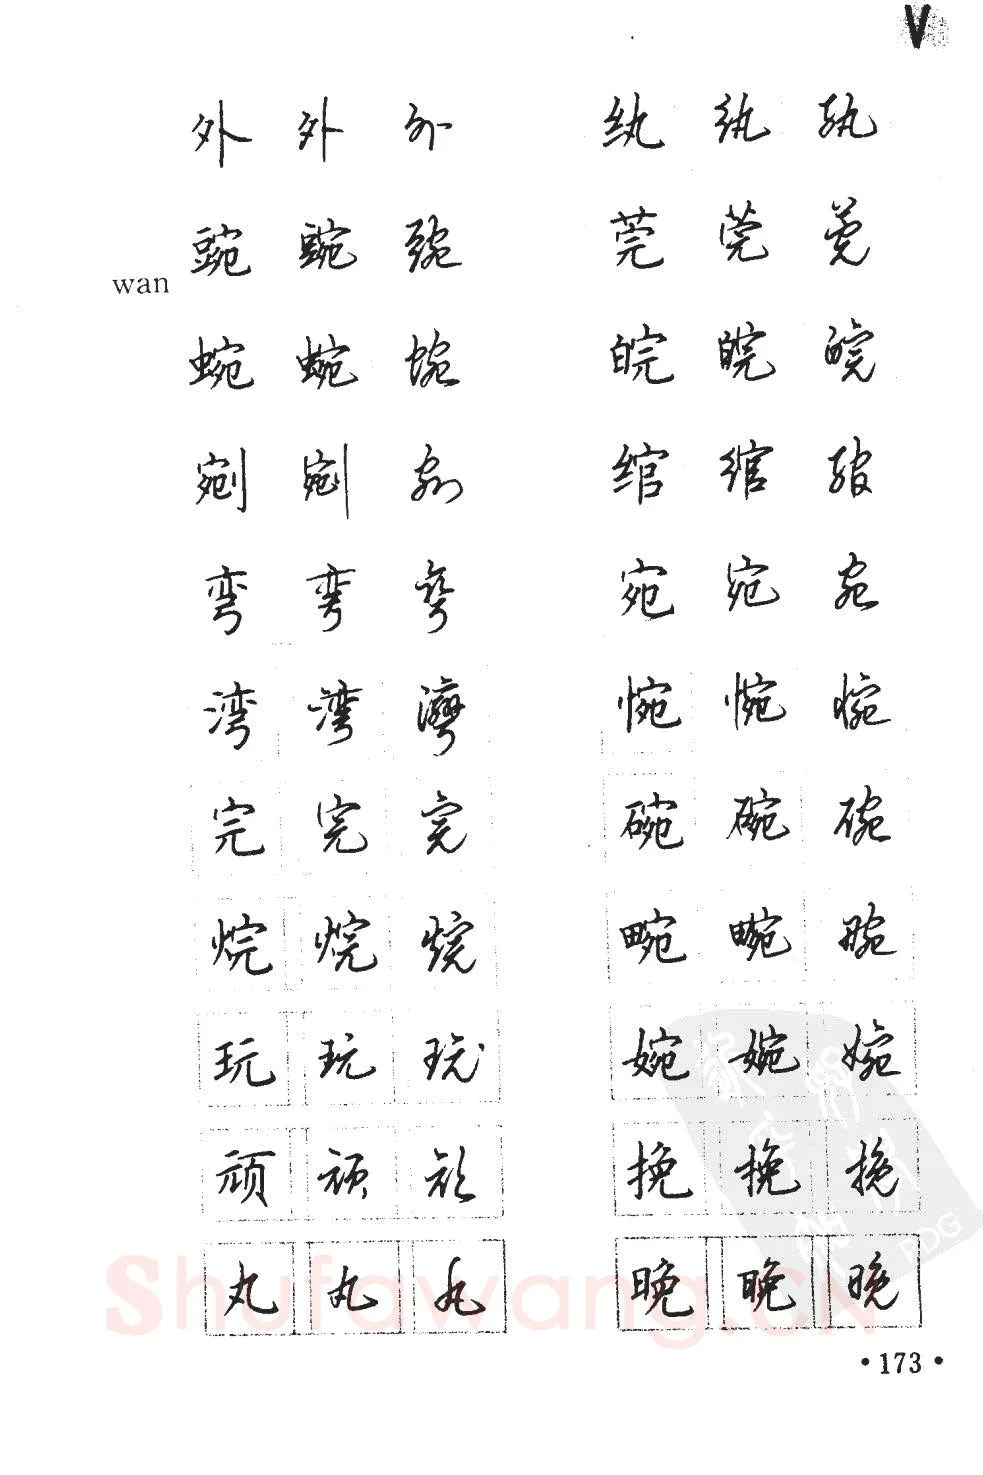 V
外 外 外 纨 纨 纨
wan
豌 豌 豌 莞 莞 莞
蜿 蜿 蜿 皖 皖 皖
剜 剜 剜 绾 绾 绾
弯 弯 弯 宛 宛 宛
湾 湾 灣 惋 惋 惋
完 完 完 碗 碗 碗
烷 烷 烷 畹 畹 畹
玩 玩 玩 婉 婉 婉
顽 顽 顽 挽 挽 挽
丸 丸 丸 晚 晚 晚
Shufawang.CN
PDG
·173·